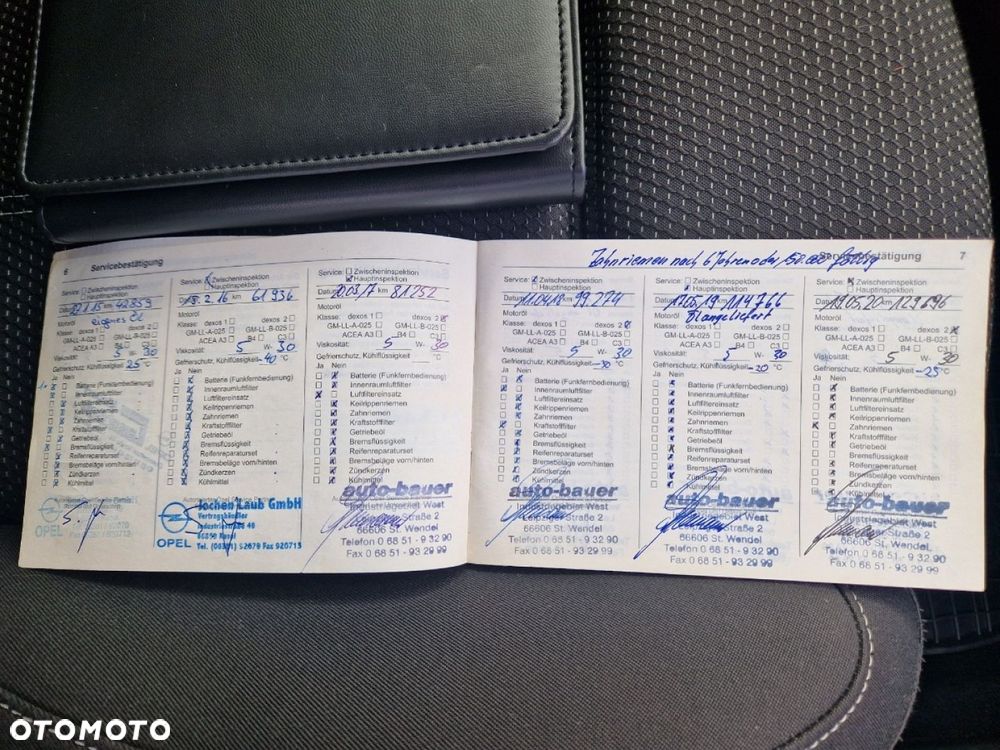 6 Servicebestätigung
Service: Zwischeninspektion
Hauptinspektion
Datum km
Motoröl eigenes Öl
Klasse: dexos 1 dexos 2
GM-LL-A-025 GM-LL-B-025
ACEA A3 B4 C3
Viskosität: 5 W- 30
Gefrierschutz, Kühlflüssigkeit -25 °C
Ja Nein
Batterie (Funkfernbedienung)
Innenraumluftfilter
Luftfiltereinsatz
Keilrippenriemen
Zahnriemen
Kraftstofffilter
Getriebeöl
Bremsflüssigkeit
Reifenreparaturset
Bremsbeläge vorn/hinten
Zündkerzen
Kühlmittel
OPEL
Service: Zwischeninspektion
Hauptinspektion
Datum 2.16 km 61936
Motoröl
Klasse: dexos 1 dexos 2
GM-LL-A-025 GM-LL-B-025
ACEA A3 B4 C3
Viskosität: 5 W- 30
Gefrierschutz, Kühlflüssigkeit -40 °C
Ja Nein
Batterie (Funkfernbedienung)
Innenraumluftfilter
Luftfiltereinsatz
Keilrippenriemen
Zahnriemen
Kraftstofffilter
Getriebeöl
Bremsflüssigkeit
Reifenreparaturset
Bremsbeläge vorn/hinten
Zündkerzen
Kühlmittel
Jochen Laub GmbH
Vertragshändler
Industriestraße 40
OPEL Tel.
Service: Zwischeninspektion
Hauptinspektion
Datum km 81252
Motoröl
Klasse: dexos 1 dexos 2
GM-LL-A-025 GM-LL-B-025
ACEA A3 B4 C3
Viskosität: 5 W- 30
Gefrierschutz, Kühlflüssigkeit °C
Ja Nein
Batterie (Funkfernbedienung)
Innenraumluftfilter
Luftfiltereinsatz
Keilrippenriemen
Zahnriemen
Kraftstofffilter
Getriebeöl
Bremsflüssigkeit
Reifenreparaturset
Bremsbeläge vorn/hinten
Zündkerzen
Kühlmittel
auto-bauer
Industriegebiet West
Straße 2
66606 St. Wendel
Telefon 0 68 51 - 9 32 90
Fax 0 68 51 - 93 29 99
Zahnriemen nach 6 Jahren oder fällig
Servicebestätigung 7
Service: Zwischeninspektion
Hauptinspektion
Datum 11.04.18 km 99274
Motoröl
Klasse: dexos 1 dexos 2
GM-LL-A-025 GM-LL-B-025
ACEA A3 B4 C3
Viskosität: 5 W- 30
Gefrierschutz, Kühlflüssigkeit -30 °C
Ja Nein
Batterie (Funkfernbedienung)
Innenraumluftfilter
Luftfiltereinsatz
Keilrippenriemen
Zahnriemen
Kraftstofffilter
Getriebeöl
Bremsflüssigkeit
Reifenreparaturset
Bremsbeläge vorn/hinten
Zündkerzen
Kühlmittel
auto-bauer
Industriegebiet West
Straße 2
66606 St. Wendel
Telefon 0 68 51 - 9 32 90
Fax 0 68 51 - 93 29 99
Service: Zwischeninspektion
Hauptinspektion
Datum 17.05.19 km 114766
Motoröl Öl angeliefert
Klasse: dexos 1 dexos 2
GM-LL-A-025 GM-LL-B-025
ACEA A3 B4 C3
Viskosität: 5 W- 30
Gefrierschutz, Kühlflüssigkeit -30 °C
Ja Nein
Batterie (Funkfernbedienung)
Innenraumluftfilter
Luftfiltereinsatz
Keilrippenriemen
Zahnriemen
Kraftstofffilter
Getriebeöl
Bremsflüssigkeit
Reifenreparaturset
Bremsbeläge vorn/hinten
Zündkerzen
auto-bauer
Industriegebiet West
Straße 2
66606 St. Wendel
Telefon 0 68 51 - 9 32 90
Fax 0 68 51 - 93 29 99
Service: Zwischeninspektion
Hauptinspektion
Datum 19.05.20 km 129696
Motoröl
Klasse: dexos 1 dexos 2
GM-LL-A-025 GM-LL-B-025
ACEA A3 B4 C3
Viskosität: 5 W- 30
Gefrierschutz, Kühlflüssigkeit -25 °C
Ja Nein
Batterie (Funkfernbedienung)
Innenraumluftfilter
Luftfiltereinsatz
Keilrippenriemen
Zahnriemen
Kraftstofffilter
Getriebeöl
Bremsflüssigkeit
Reifenreparaturset
Bremsbeläge vorn/hinten
Zündkerzen
Kühlmittel
auto-bauer
Industriegebiet West
Straße 2
66606 St. Wendel
Telefon 0 68 51 - 9 32 90
Fax 0 68 51 - 93 29 99
OTOMOTO